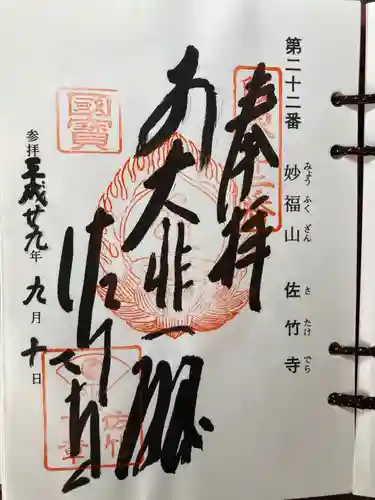 第二十二番 妙福山 佐竹寺
みょうふくざん さたけでら
奉拝
大悲殿
佐竹寺
國寳
佐竹
参拝平成廿九年九月十日